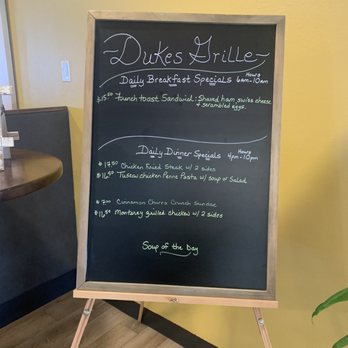 Dukes Grille
Daily Breakfast Specials Hours
6am-10am
$15.50 French toast Sandwich: Shaved ham, swiss cheese
& scrambled eggs.
Daily Dinner Specials Hours
4pm-10pm
$17.50 Chicken Fried Steak w/ 2 sides
$16.50 Tuscan chicken Penne Pasta w/ soup or Salad
$7.00 Cinnamon Churro Crunch Sundae
$16.50 Monterey grilled chicken w/ 2 sides
Soup of the Day